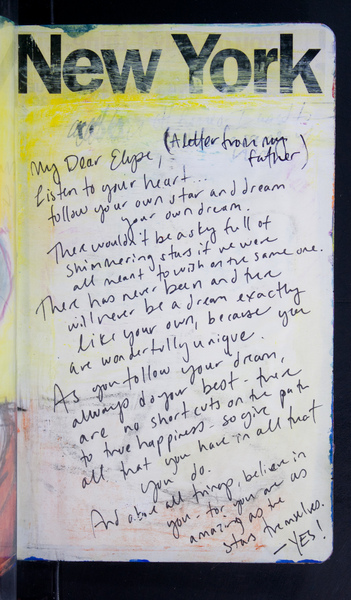 New York
My Dear Elyse, (A letter from my
father)
Listen to your heart...
follow your own star and dream
your own dream.
There wouldn't be a sky full of
shimmering stars if we were
all meant to wish on the same one.
There has never been and there
will never be a dream exactly
like your own, because you
are wonderfully unique.
As you follow your dream,
always do your best - there
are no short cuts on the path
to true happiness - so give
all that you have in all that
you do.
And above all things, believe in
you - for you are as
amazing as the
stars themselves.
— YES!